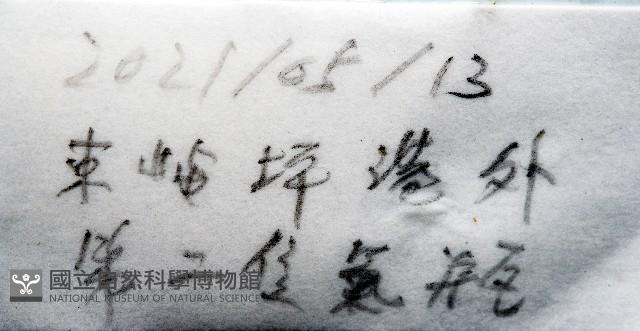 2021/05/13
東嶼坪港外
第二隻氣瓶
國立自然科學博物館
NATIONAL MUSEUM OF NATURAL SCIENCE